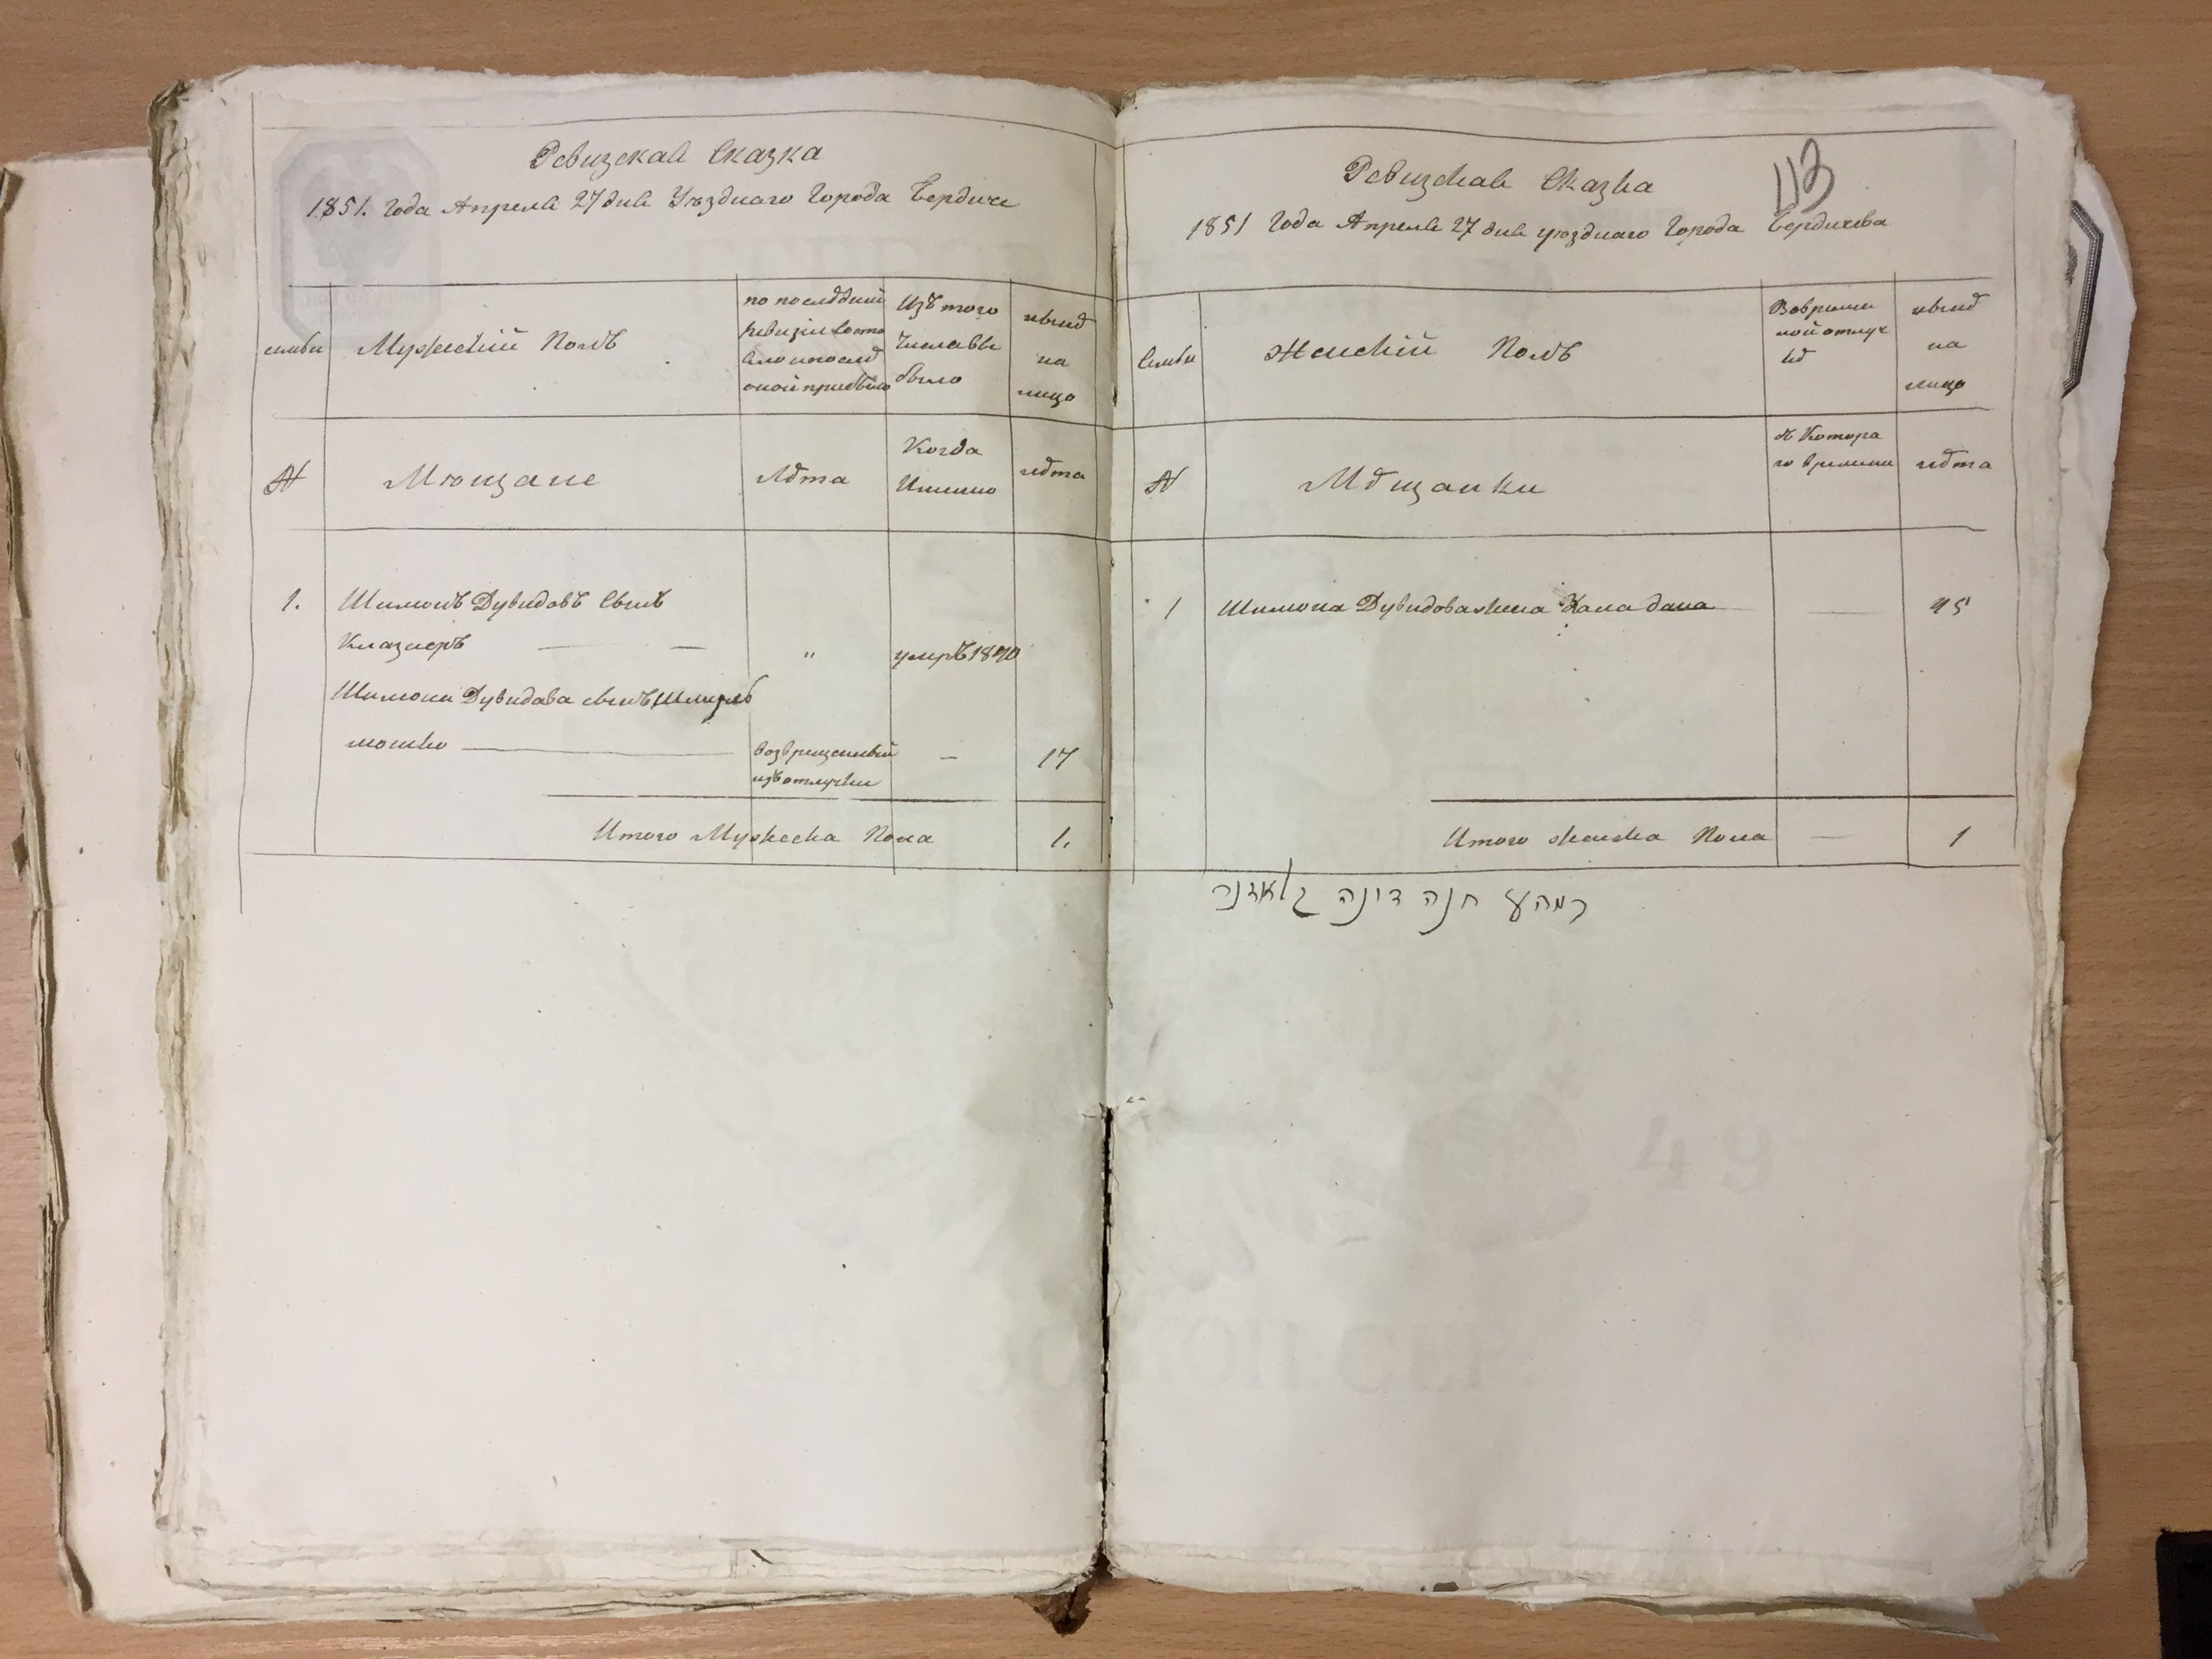 Ревизская Сказка
1851. Года Апреля 27 дня Уѣзднаго Города Бердиче
семьи
Мужеский Полъ
по последней
ревизіи состо
яло и послѣ
оной прибыло
Изъ того
числа вы
было
нынѣ
на
лицо
№
Мѣщане
Лѣта
Когда
Именно
лѣта
1.
Шимонъ Дувидовъ Сынъ
Клазмеръ — — " умръ 1840
Шимона Дувидова сынъ Шмуль
мошко — возвращеный — 17
изъ отлучки
Итого Мужеска Пола 1.
Ревизская Сказка
113
1851 Года Апреля 27 дня уѣзднаго Города Бердичева
Семьи
Женскій Полъ
Во времен
ной отлуч
кѣ
нынѣ
на
лицо
№
Мѣщанки
съ Котора
го времени
лѣта
1 Шимона Дувидова жена Хана дина — 45
Итого женска Пола — 1
חנה דינה